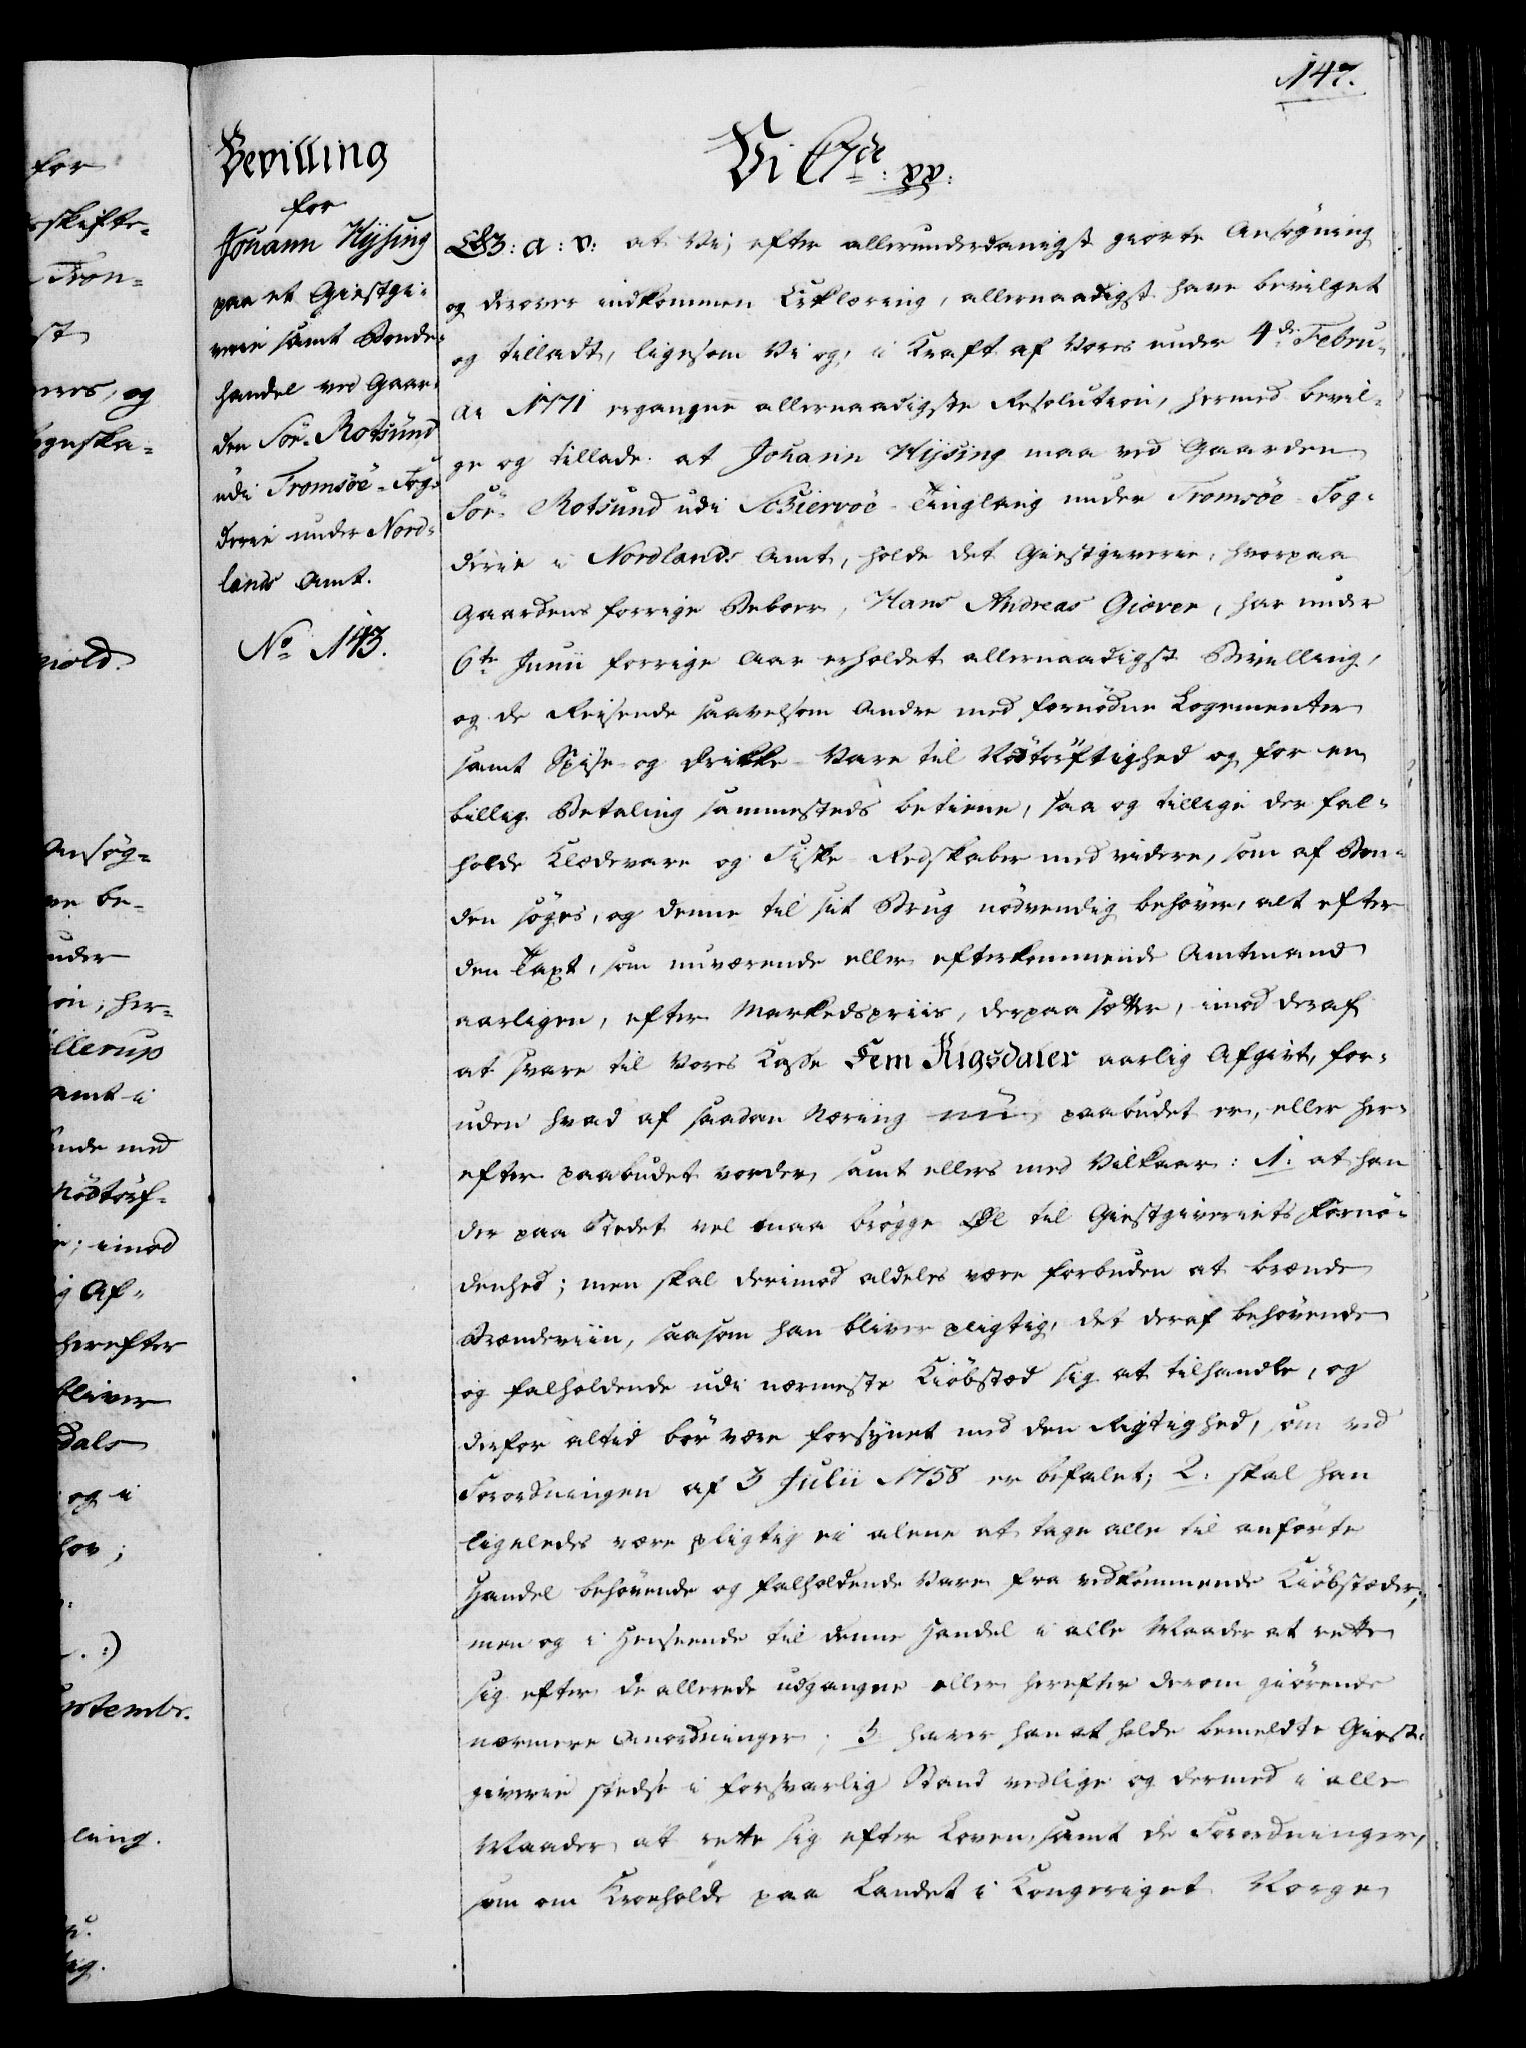 147.
Bevilling
for
Johann Hysing
paa et Giestgi-
verie samt Bonde-
handel ved Gaar-
den Sör-Rotsund
udi Tromsöe-Fog-
derie under Nord-
lands Amt.
No 143.
Vi C 7de: pp:
G: a: v: at Vi, efter allerunderdanigst giorte Ansögning
og derover indkommen Erklæring, allernaadigst have bevilget
og tilladt, ligesom Vi og, i Kraft af Vores under 4de Febru-
ar 1771 ergangne allernaadigste Resolution, hermed bevil-
ge og tillade at Johann Hysing maa ved Gaarden
Sör-Rotsund udi Schiervöe-Tinglaug under Tromsöe-Fog-
derie i Nordlands Amt, holde det Giestgiverie, hvorpaa
Gaardens forrige Beboer, Hans Andreas Giæver, har under
6te Junii forrige Aar erholdet allernaadigst Bevilling,
og de Reisende saavelsom Andre med fornödne Logementer
samt Spise- og Drikke-Vare til Nödtörftighed og for en
billig Betaling sammesteds betiene, saa og tillige der fal-
holde Klædevare og Fiske-Redskaber med videre, som af Bon-
den söges, og denne til sit Brug nödvendig behöver, alt efter
den Taxt, som nuværende eller efterkommende Amtmand
aarligen, efter Markedspriis, derpaa sætter, imod deraf
at svare til Vores Kasse Fem Rigsdaler aarlig Afgivt, for-
uden hvad af saadan Næring nu paabudet er, eller her-
efter paabudet vorder, samt ellers med Vilkaar: 1. at han
der paa Stedet vel maa brögge Öl til Giestgiveriets Fornö-
denhed; men skal derimod aldeles være forbuden at brænde
Brændeviin, saasom han bliver pligtig, det deraf behövende
og falholdende udi nærmeste Kiöbstæd sig at tilhandle, og
derfor altid bör være forsynet med den Rigtighed, som ved
Forordningen af 3 Julii 1758 er befalet; 2. skal han
ligeledes være pligtig ei alene at tage alle til anförte
Handel behövende og falholdende Vare fra vedkommende Kiöbstæder,
men og i Henseende til denne Handel i alle Maader at rette
sig efter de allerede udgangne eller herefter derom giörende
nærmere Anordninger; 3 haver han at holde bemeldte Giest-
giverie stedse i forsvarlig Stand vedlige og dermed i alle
Maader at rette sig efter Loven, samt de Forordninger,
som om Kroehold paa Landet i Kongeriget Norge